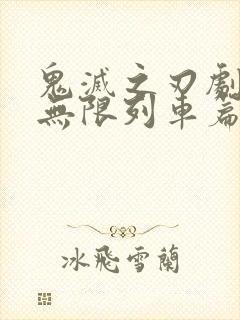 鬼滅之刃劇
無限列車篇
冰飛雪蘭